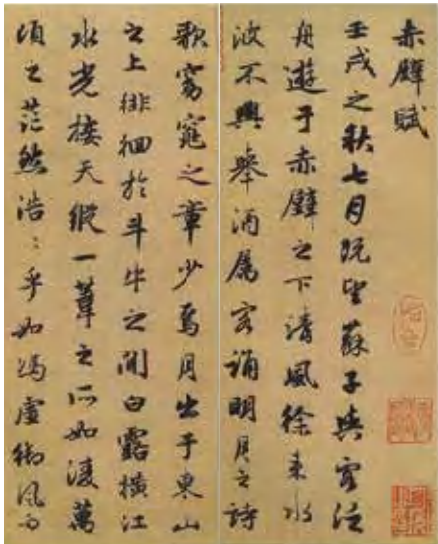 赤壁賦
壬戌之秋七月既望蘇子與客泛
舟遊于赤壁之下清風徐来水
波不興舉酒屬客誦明月之詩
歌窈窕之章少焉月出于東山
之上徘徊於斗牛之間白露橫江
水光接天縱一葦之所如淩萬
頃之茫然浩〻乎如馮虛御風而